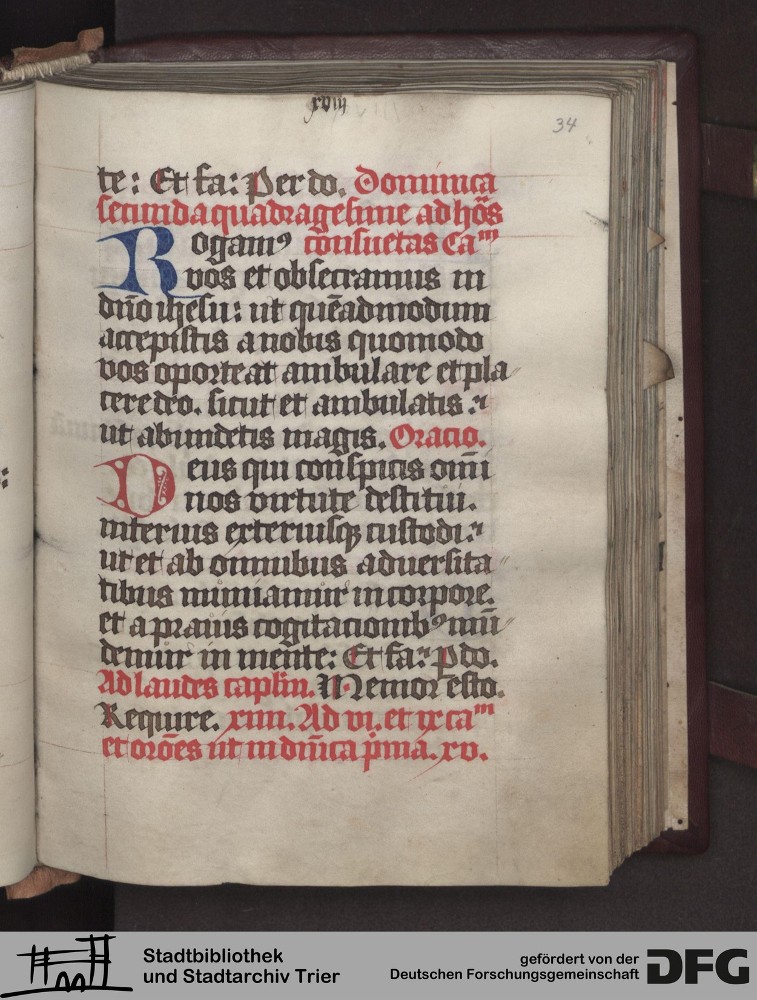 xviij
34
te: Et fa: Per do. Dominica
secunda quadragesime ad hōs
Rogamꝰ consuetas Caᵐ
vos et obsecramus in
dn̄o ihesu: ut quēadmodum
accepistis a nobis quomodo
vos oporteat ambulare et pla
cere deo. sicut et ambulatis:
ut abundetis magis. Oracio.
Deus qui conspicis om̄i
nos virtute destitui.
interius exteriusqꝫ custodi:
ut et ab omnibus aduersita
tibus muniamur in corpore.
et a prauis cogitacionibꝰ mū
demur in mente: Et fa: ꝑ do.
Ad laudes caplm̄. Memor esto.
Require. xiiii. Ad vi. et ix caᵐ
et orōes ut in dn̄ica pͥma. xv.
Stadtbibliothek
und Stadtarchiv Trier
gefördert von der
Deutschen Forschungsgemeinschaft
DFG